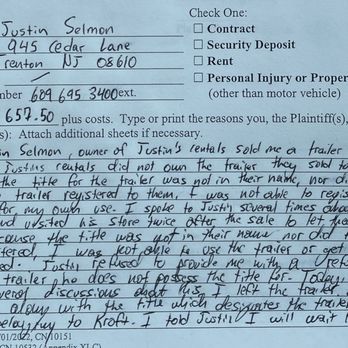 Justin Selmon
945 Cedar Lane
renton NJ 08610
Check One:
☐ Contract
☐ Security Deposit
☐ Rent
☐ Personal Injury or Proper
(other than motor vehicle)
mber 609 695 3400 ext.
657.50 plus costs. Type or print the reasons you, the Plaintiff(s),
s): Attach additional sheets if necessary.
in Selmon, owner of Justin's rentals sold me a trailer
Justins rentals did not own the trailer they sold to
the title for the trailer was not in their name, nor did
trailer registered to them, I was not able to regis
for my own use. I spoke to Justin several times abou
and visited his store twice after the sale to let
cause the title was not in their name nor did
tered, I was not able to use the trailer or get
ed. Justin refused to provide me with a refu
trailer he does not possess the title for. Today,
veral discussions about this, I left the trailer
along with the title which designates the traile
belong to Kroft. I told Justin I will wait
/01/2022, CN 10151
CN 10532 (Appendix XI-C)